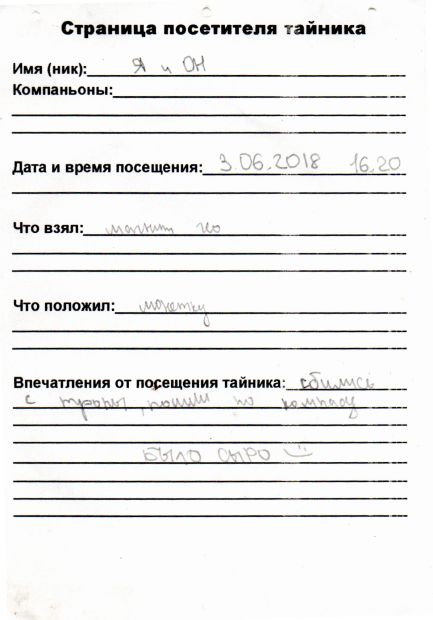 Страница посетителя тайника
Имя (ник): Я и ОН
Компаньоны:
Дата и время посещения: 3.06.2018 16.20
Что взял: магнит
Что положил: монетку
Впечатления от посещения тайника: сбились
с тропы, пошли по компасу
БЫЛО СЫРО